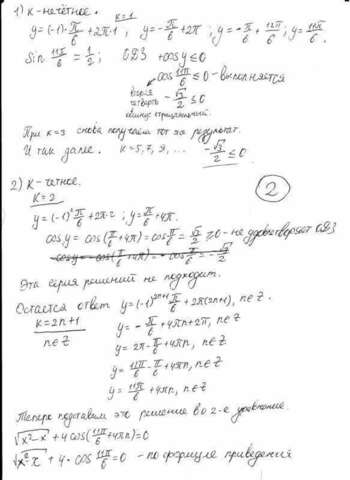 1) К-нечётное.
к=1
y=(-1)·π/6+2π·1 ; y=-π/6+2π ; y=-π/6+12π/6 ; y=11π/6.
Sin 11π/6 = 1/2 ; ОДЗ +cosy≤0
cos 11π/6 ≤0 - выполняется
вторая
четверть -√3/2 ≤0
косинус отрицательный.
При к=3 снова получаем тот же результат.
И так далее. к=5,7,9,... -√3/2 ≤0.
2) К-четное.
2
к=2
y=(-1)²π/6+2π·2 ; y=π/6+4π.
cosy= cos(π/6+4π)=cosπ/6=√3/2 ≥0 - не удовлетворяет ОДЗ
cosy=-cos(π/6+4π)=-cosπ/6=-√3/2
Эта серия решений не подходит.
Остаётся ответ y=(-1)²ⁿ⁺¹π/6+2π(2n+1), n∈Z.
к=2n+1
n∈Z
y=-π/6+4πn+2π, n∈Z
y=2π-π/6+4πn, n∈Z
y=11π/6-π/6+4πn, n∈Z
y=11π/6+4πn, n∈Z
Теперь подставим это решение во 2-е уравнение.
√x²-x+4cos(11π/6+4πn)=0
√x²-x+4·cos11π/6=0 - по формуле приведения